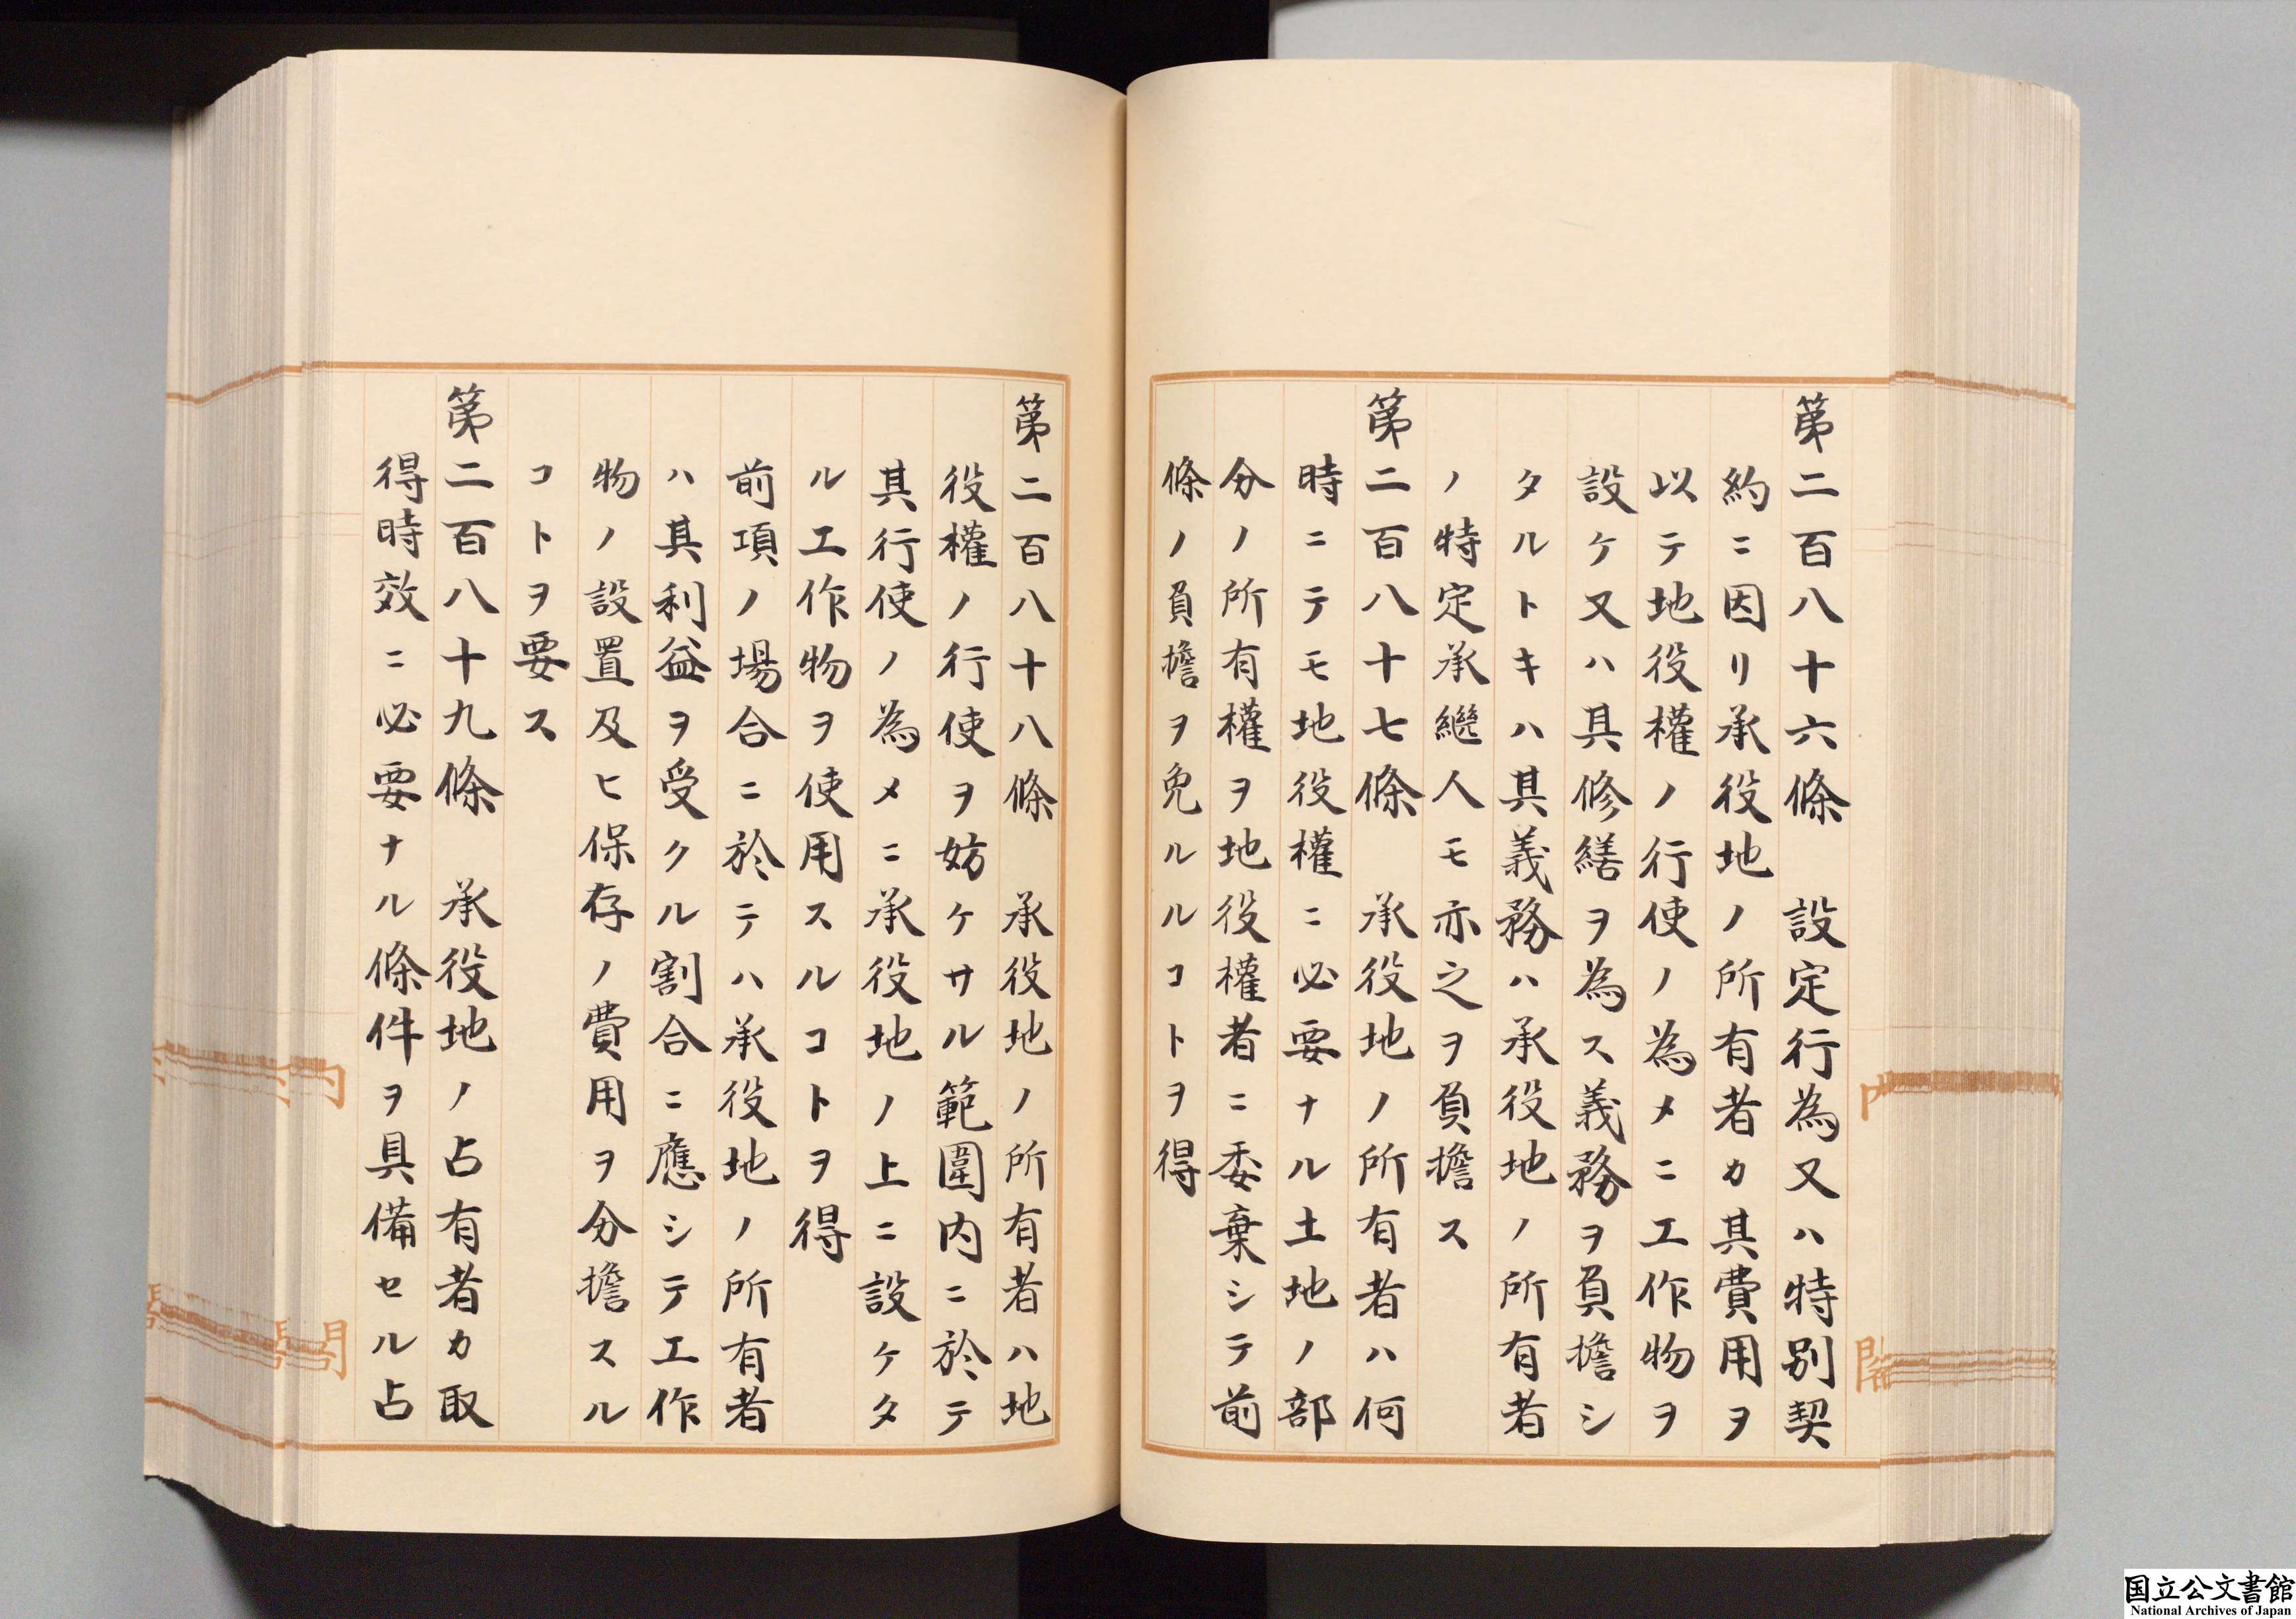 第二百八十六條　設定行為又ハ特別契
約ニ因リ承役地ノ所有者カ其費用ヲ
以テ地役權ノ行使ノ為メニ工作物ヲ
設ケ又ハ其修繕ヲ為ス義務ヲ負擔シ
タルトキハ其義務ハ承役地ノ所有者
ノ特定承繼人モ亦之ヲ負擔ス
第二百八十七條　承役地ノ所有者ハ何
時ニテモ地役權ニ必要ナル土地ノ部
分ノ所有權ヲ地役權者ニ委棄シテ前
條ノ負擔ヲ免ルルコトヲ得
第二百八十八條　承役地ノ所有者ハ地
役權ノ行使ヲ妨ケサル範圍内ニ於テ
其行使ノ為メニ承役地ノ上ニ設ケタ
ル工作物ヲ使用スルコトヲ得
前項ノ場合ニ於テハ承役地ノ所有者
ハ其利益ヲ受クル割合ニ應シテ工作
物ノ設置及ヒ保存ノ費用ヲ分擔スル
コトヲ要ス
第二百八十九條　承役地ノ占有者カ取
得時效ニ必要ナル條件ヲ具備セル占
国立公文書館
National Archives of Japan